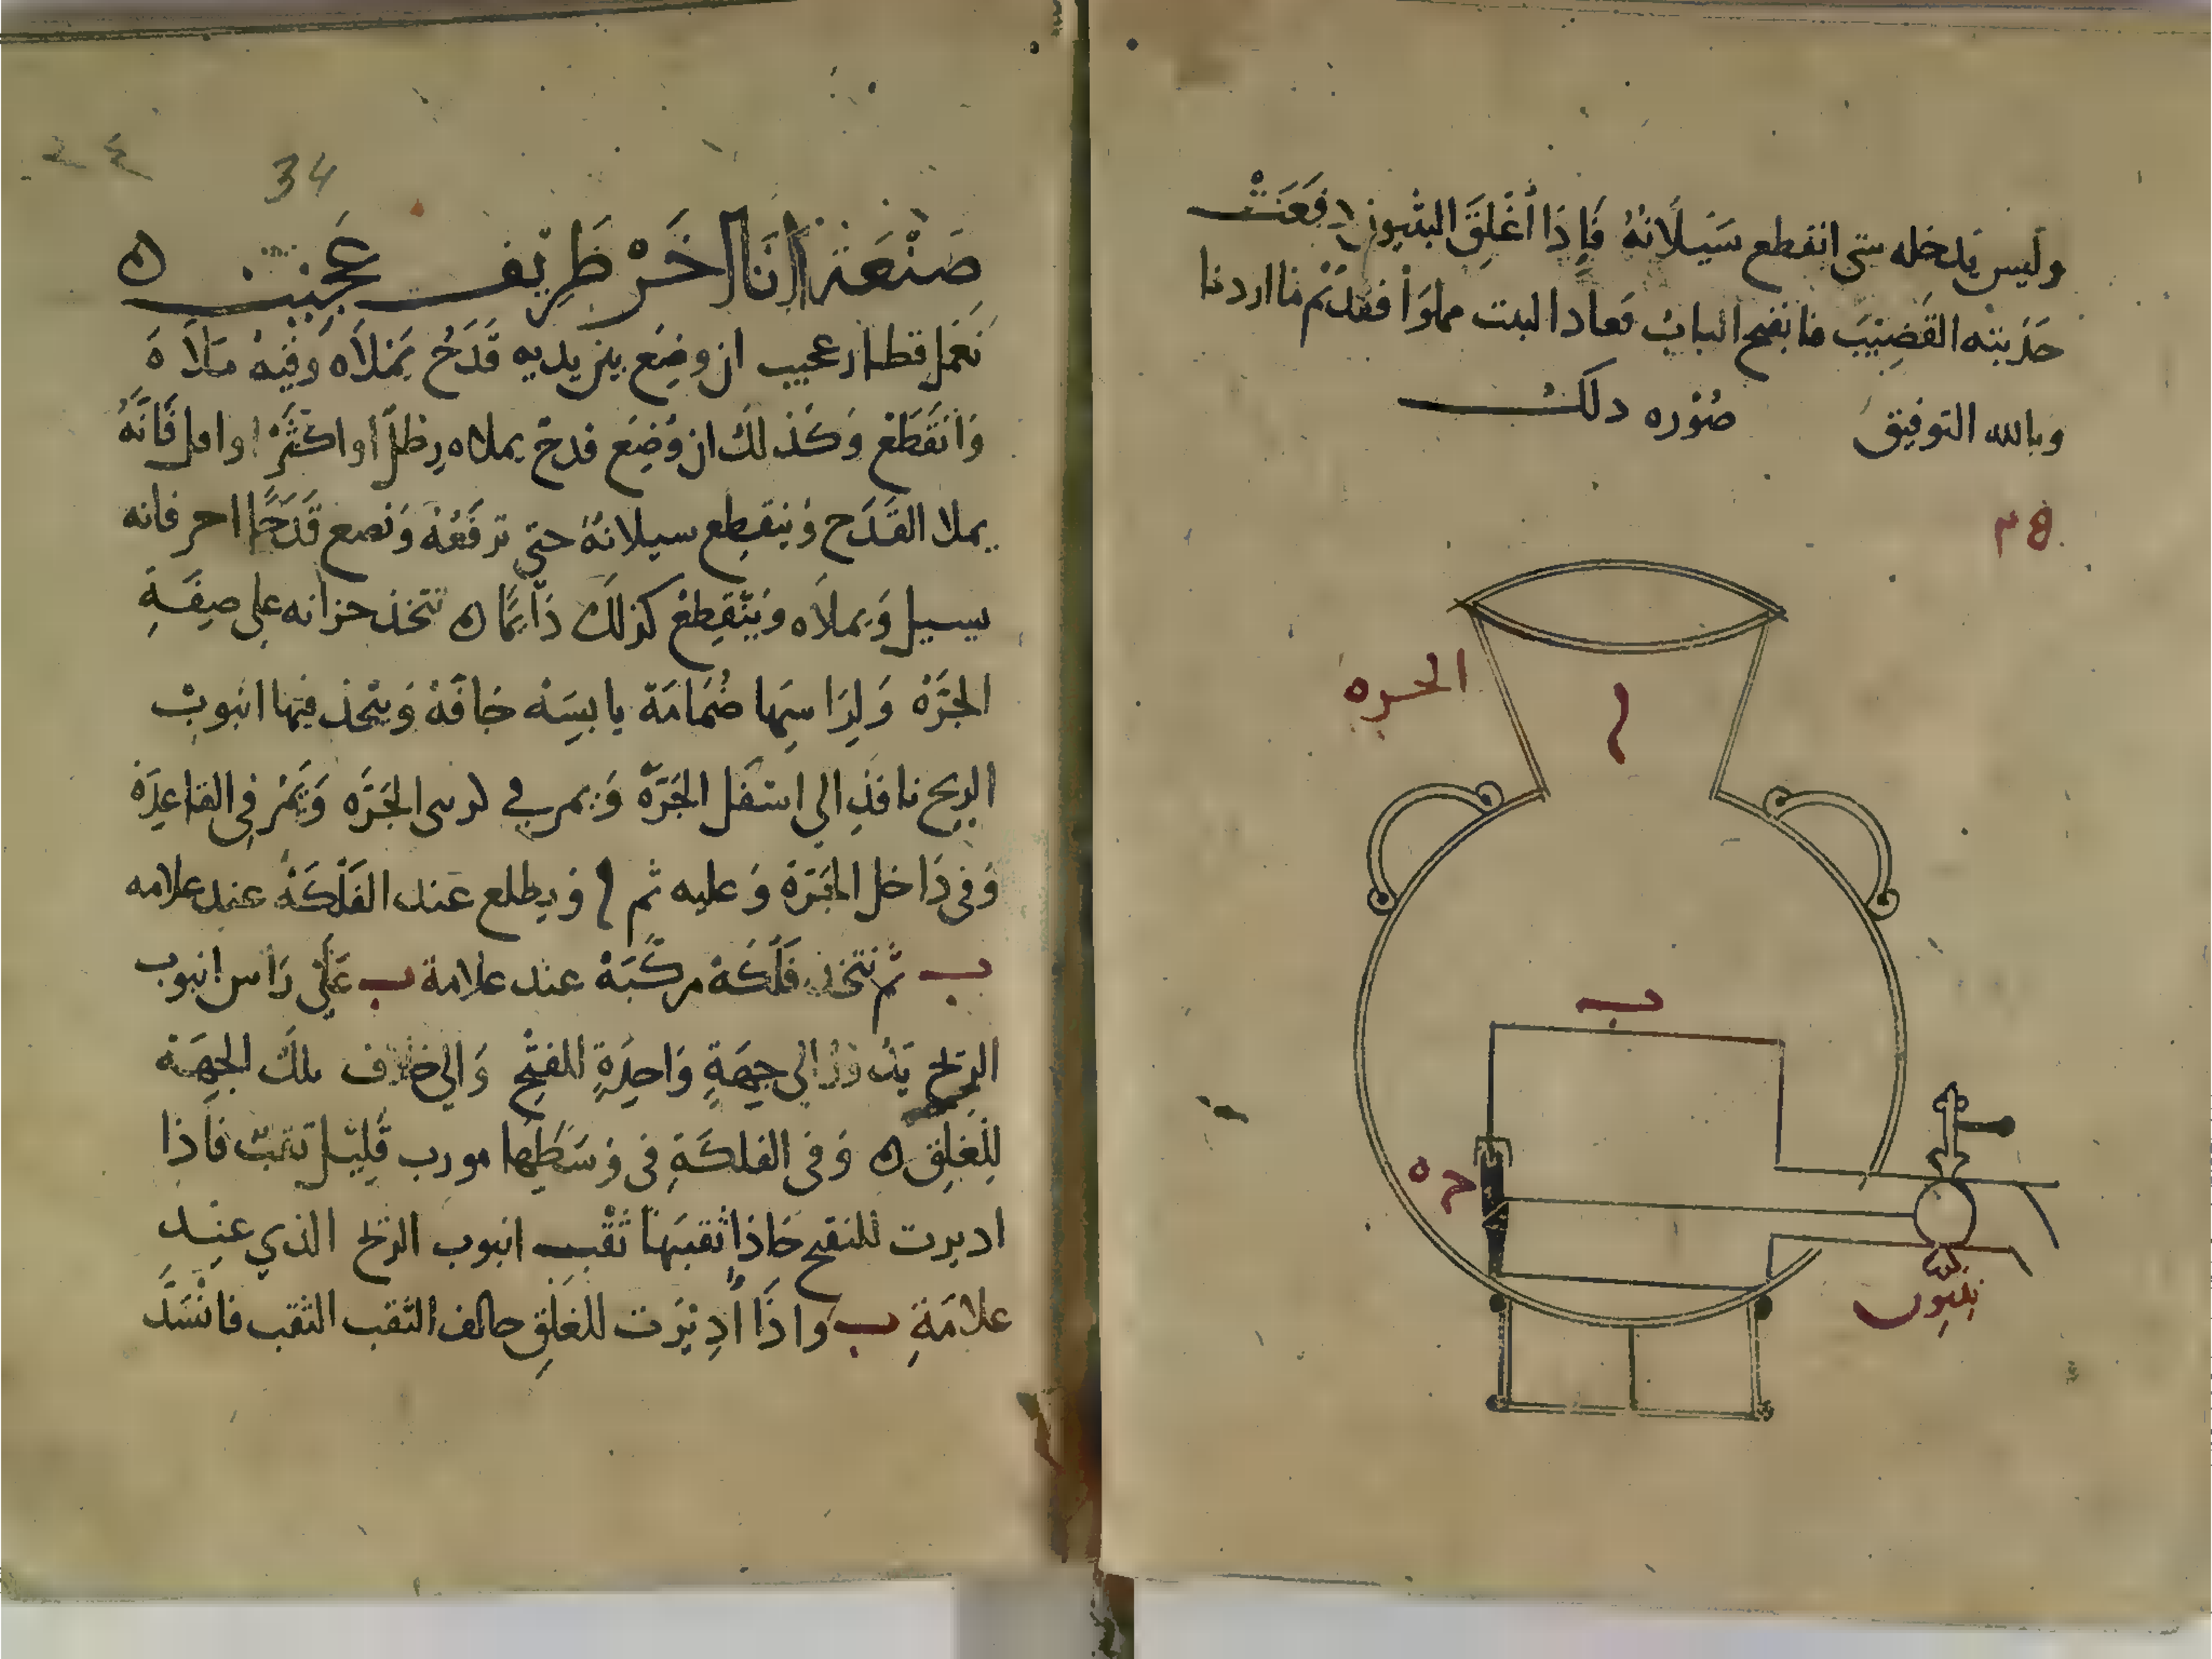 وليس يدخله شي انقطع سَيَلَانهُ فَإِذَا أُغْلِقَ البثيون دفَعَتْ
القَضِيْبَ فانفتح البابُ فعاد البيت مملوَاً فقد تم ما اردنا
وبالله التوفيق صُوْره ذلكُ
الجره
ا
ب
ح ه
بثيون
34
صَنْعَة اِنَا اخَرْ ظَرِيْف عَجِيْبْ ه
نَعْمَل قطار عجيب ان وضِع بين يديه قَدَحُ يَمْلَاه وَفيْهُ مَلَاهَ
وَانقَطَعْ وَكَذلكَ ان وُضِعَ قدحٌ يملاه رِطْلًا او اكثَرْ او اقل فَانَّهُ
يملا القَدَح وَينقطِع سيلانهُ حتى ترفَعُهْ وَتضع قَدَحًا اخر فانه
يسيل وَيملاه وَيَنْقَطِعْ كذلكَ دَايمًا ه نتخذ خزانه على صِفَةِ
الجَرَّهْ وَلِرَاسِهَا صُمَامَة يابسَه جَافَهْ وَيتخذ فيها انبوبْ
الريح نافذِ الي اسْفَل الجَرَّهْ وَيمر في كرسى الجَرَّه وَيَمُرْ فى القاعِدَهْ
وَفى دَاخل الجَرَّة وَعليه ثم ا وَيطلع عند الفَلْكَهْ عند علامه
ب ثم نتخذ فَلَكَهْ مركَّبَةْ عند علامة ب عَلَى رَاس انبوب
الريح يَدُورُ الى جِهَةٍ وَاحِدَةٍ للفتْح وَالى خلاف تلكَ الجِهَة
لِلغَلِقِ ه وَفى الفلكَةِ فى وَسَطِهَا مورب قَلِيْل ثقبٌ فاذا
اديرت للفتح حَاذا ثقبَهَا ثَقْب انبوب الريح الذي عنِد
علامَةِ ب وَاذَا اُدِيْرَت للغَلِقِ خالف الثقب الثقب فانْسَدَّ